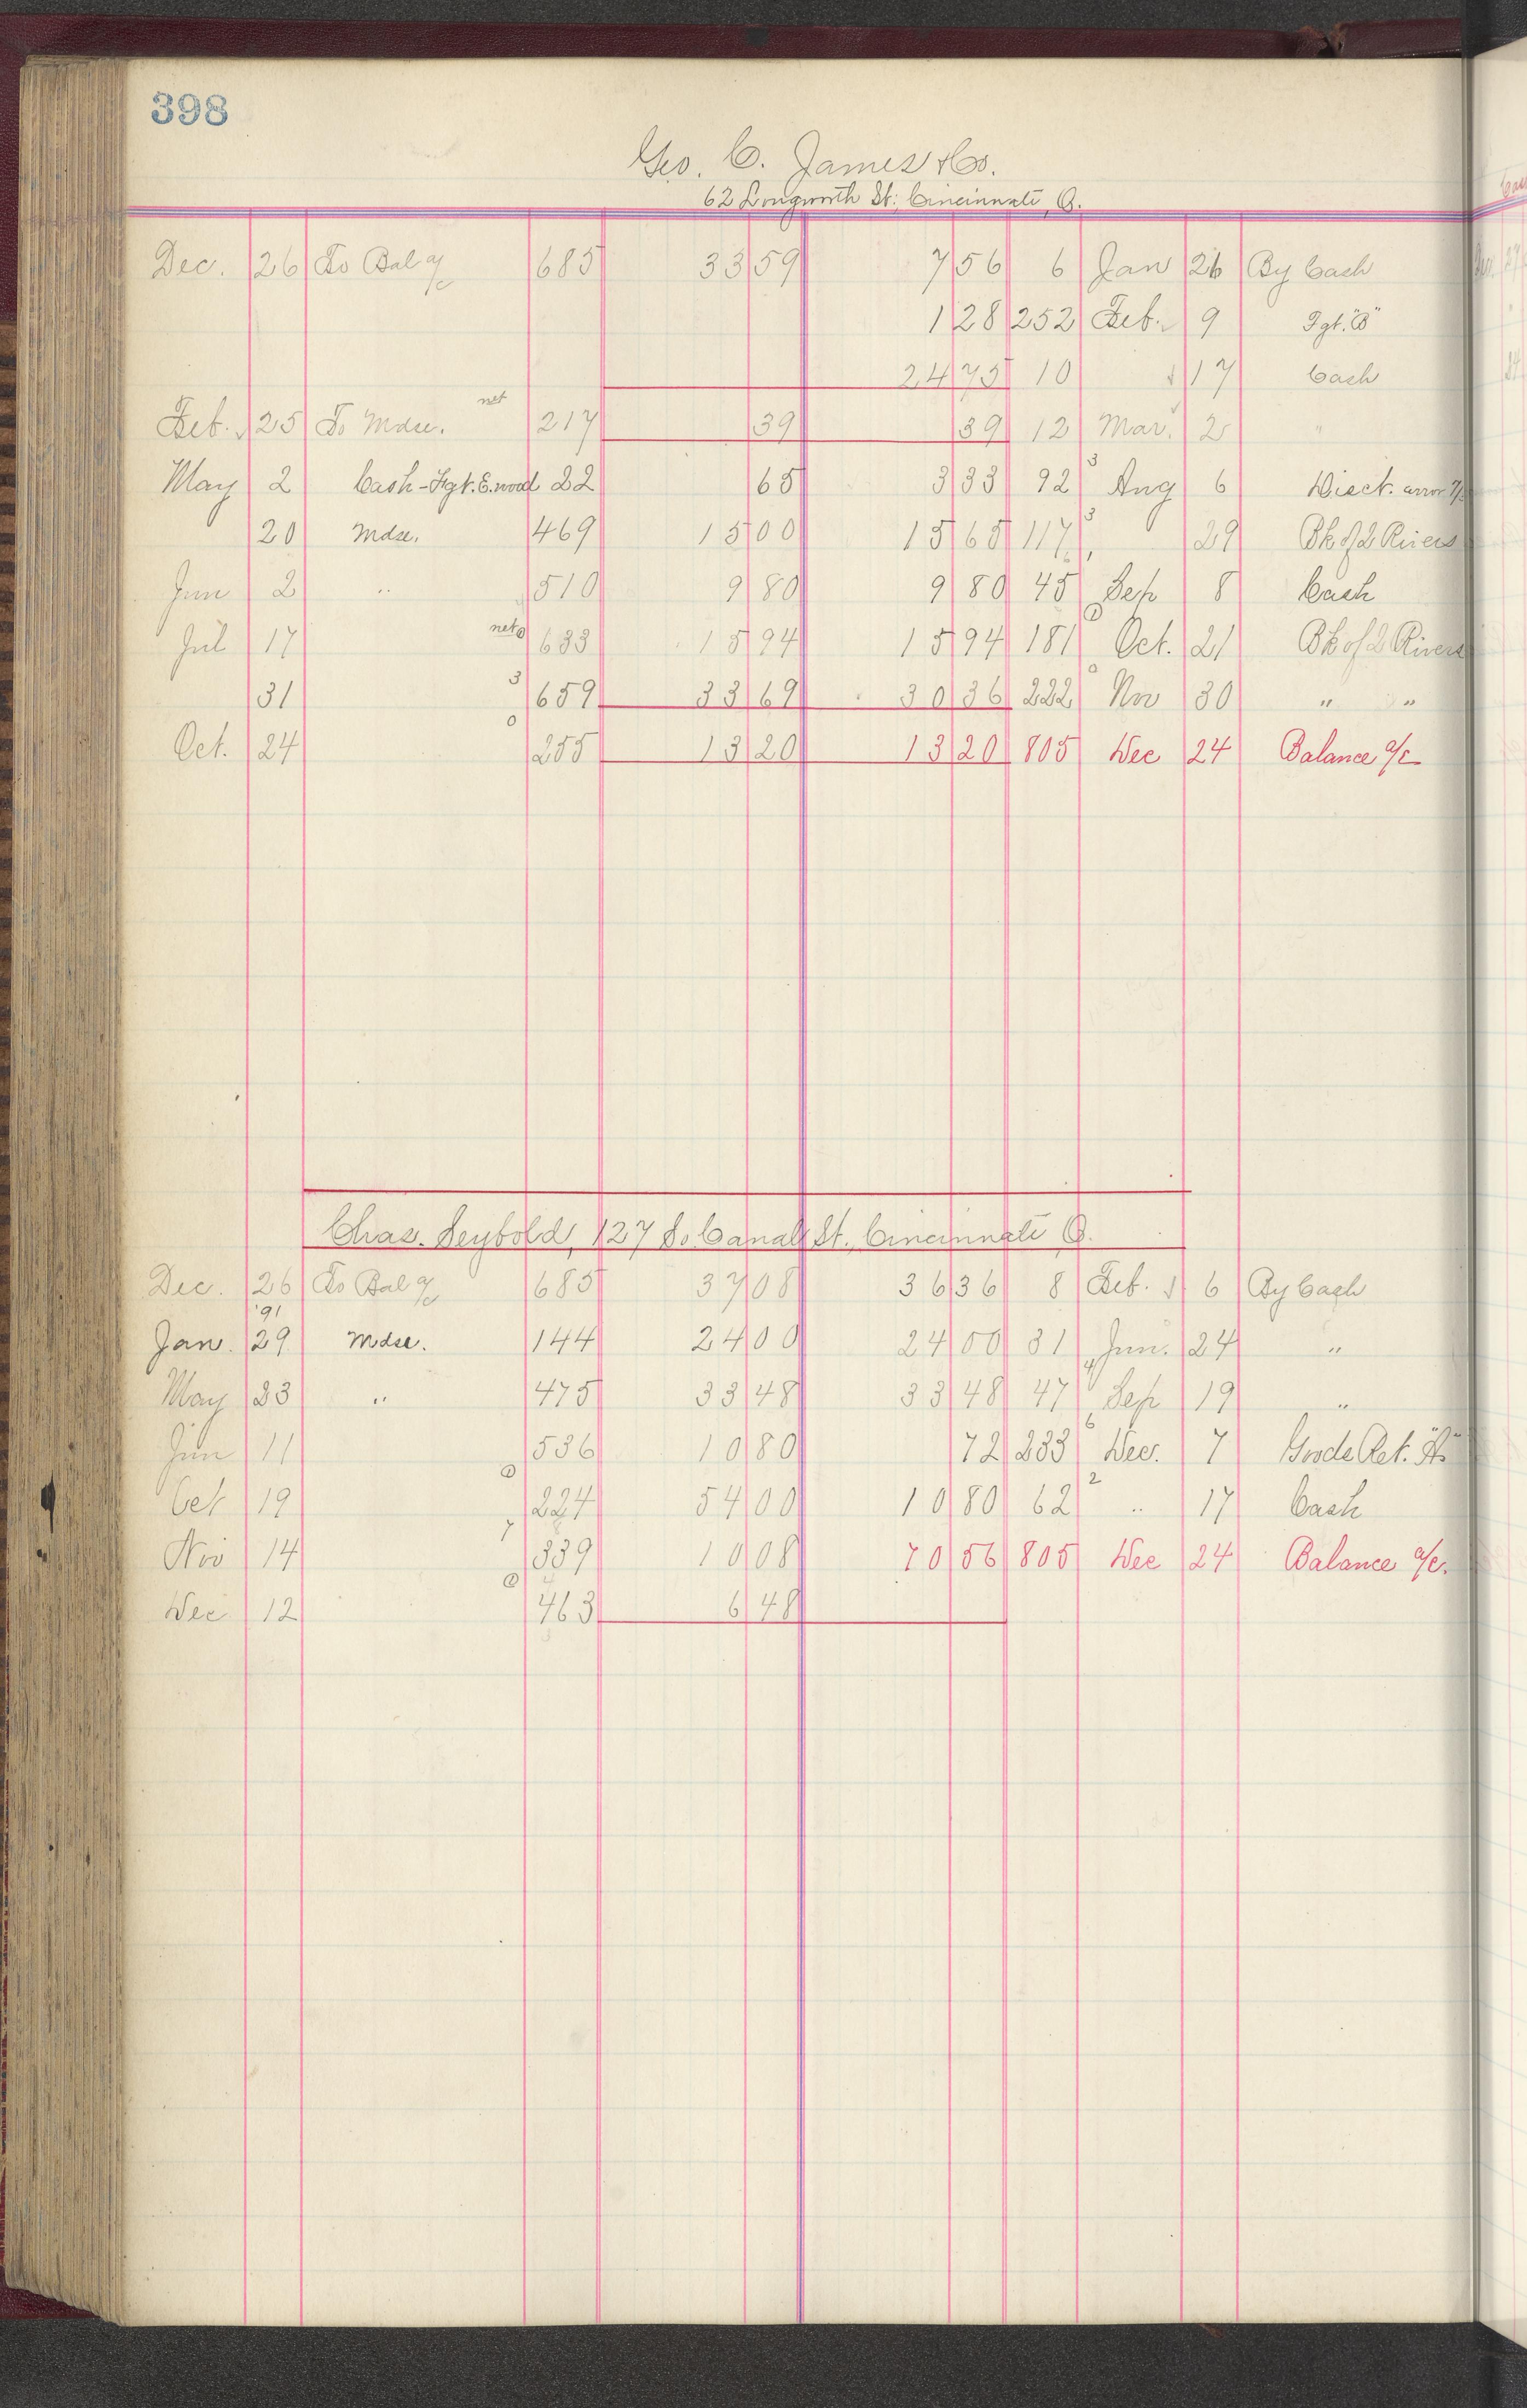 398
Geo. C. James & Co.
62 Longworth St. Cincinnati, O.
Dec. 26 To Bal a/c 685 33 59 7 56 6 Jan 26 By Cash
1 28 252 Feb. 9 Fgt. "B"
24 75 10 " 17 Cash
Feb. 25 To Mdse. net 217 39 39 12 Mar. 2 "
May 2 Cash - Fgt. E. wood 22 65 3 33 92 3 Aug 6 Disct. error
20 Mdse. 469 15 00 15 65 117 3 29 Bk of 2 Rivers
Jun 2 " 510 9 80 9 80 45 Sep 8 Cash
Jul 17 net 633 15 94 15 94 181 Oct. 21 Bk of 2 Rivers
31 3 659 33 69 30 36 222 Nov 30 " "
Oct. 24 0 255 13 20 13 20 805 Dec 24 Balance a/c
Chas. Seybold, 127 So. Canal St., Cincinnati O.
Dec. 26 To Bal a/c 685 37 08 36 36 8 Feb. 6 By Cash
'91
Jan. 29 Mdse. 144 24 00 24 00 31 Jun. 24 "
May 23 " 475 33 48 33 48 47 Sep 19 "
Jun 11 536 10 80 72 233 6 Dec. 7 Goods Ret. "A"
Oct 19 224 54 00 10 80 62 2 " 17 Cash
Nov 14 7 339 10 08 70 56 805 Dec 24 Balance a/c.
Dec 12 463 6 48